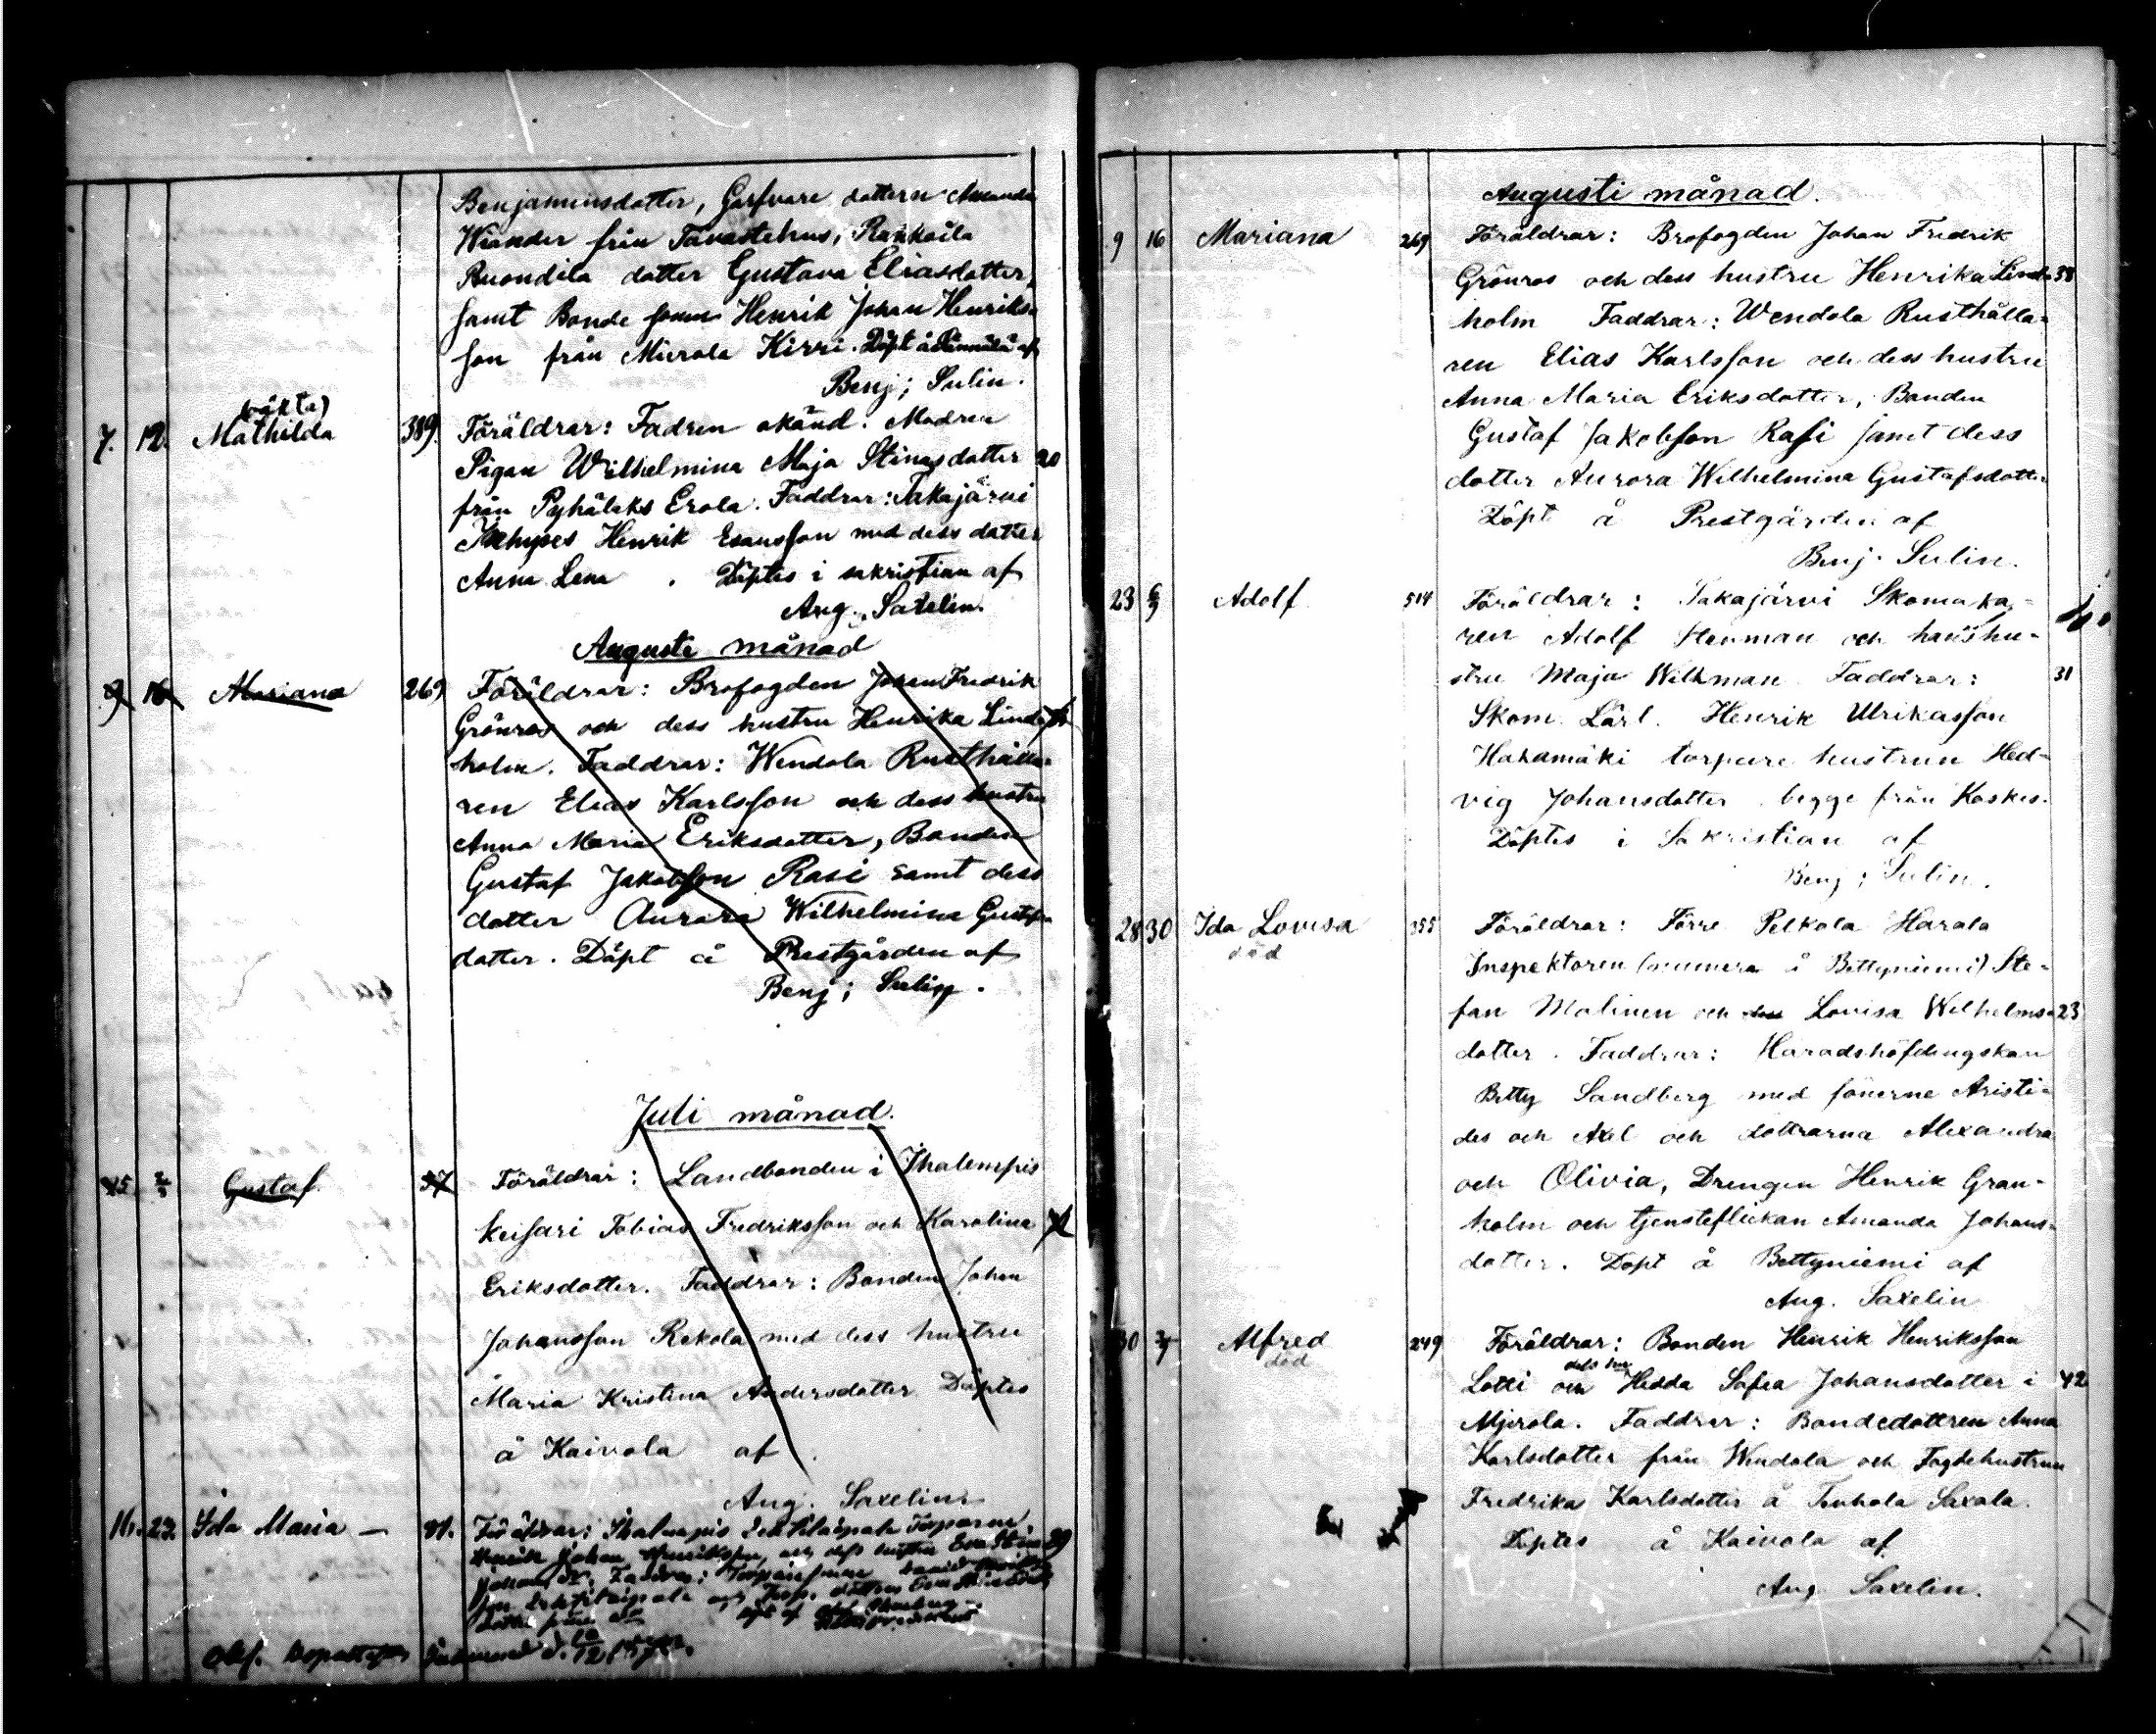 Benjaminsdotter, Garfvare dottern Amanda
Wiander från Tavastehus, Rankaila
Ruondila dotter Gustava Eliasdotter,
samt Bonde sonen Henrik Johan Henriks-
son från Mierola Kirri. Döpt å af
Benj; Sulin.
(oäkta)
7. 12. Mathilda 389. Föräldrar: Fadren okänd. Modren
Pigan Wilhelmina Maja Stinasdotter 20
från Pyhäläks Erola. Faddrar: Takajärvi
Henrik Esausson med dess dotter
Anna Lena . Döptes i sakristian af
Aug. Saxelin.
Augusti månad
9 16 Mariana 269 Föräldrar: Brofogden Johan Fredrik
Grönros och dess hustru Henrika Lind-
holm. Faddrar: Wendola Rusthålla-
ren Elias Karlsson och dess hustru
Anna Maria Eriksdotter, Bonden
Gustaf Jakobsson Rasi samt dess
dotter Aurora Wilhelmina Gustafs
dotter. Döpt å Prestgården af
Benj; Sulin.
Juli månad.
Gustaf Föräldrar: Landbonden i Ihalempis
keisari Tobias Fredriksson och Karolina
Eriksdotter. Faddrar: Bonden Johan
Johansson Rekola med dess hustru
Maria Kristina Andersdotter Döptes
å Kaivola af
Aug. Saxelin
16. 23. Ida Maria — Föräldrar: Ihalempis Torparne
Henrik Johan Henriksson, och dess hustru Eva Stina 39
Faddrar:
från
d. 10/12
Augusti månad.
9 16 Mariana 269 Föräldrar: Brofogden Johan Fredrik
Grönros och dess hustru Henrika Lind- 38
holm Faddrar: Wendola Rusthålla-
ren Elias Karlsson och dess hustru
Anna Maria Eriksdotter, Bonden
Gustaf Jakobsson Rasi samt dess
dotter Aurora Wilhelmina Gustafsdotter
Döpt å Prestgården af
Benj. Sulin.
23 6/9 Adolf 514 Föräldrar: Takajärvi Skomaka-
ren Adolf Stenman och hans hu-
stru Maja Wikman Faddrar: 31
Skom. Lärl. Henrik Ulrikasson
Hakamäki torpare hustrun Hed-
vig Johansdotter begge från Koskis.
Döptes i Sakristian af
Benj; Sulin.
28 30 Ida Lovisa 355 Föräldrar: Förre Pelkola Harala
död
Inspektoren (numera å Bettyniemi) Ste-
fan Malinen och dess Lovisa Wilhelms- 23
dotter. Faddrar: Häradshöfdingskan
Betty Sandberg med sönerne Aristi-
des och Axel och dottrarna Alexandra
och Olivia, Drengen Henrik Gran-
holm och tjensteflickan Amanda Johans-
dotter. Döpt å Bettyniemi af
Aug. Saxelin
30 Alfred 249 Föräldrar: Bonden Henrik Henriksson
död
dess hu
Lotti och Hedda Sofia Johansdotter i 42
Mjerola. Faddrar: Bondedottren Anna
Karlsdotter från Wendola och Fogdehustrun
Fredrika Karlsdotter å Tenhola Saxala.
Döptes å Kaivola af
Aug. Saxelin.